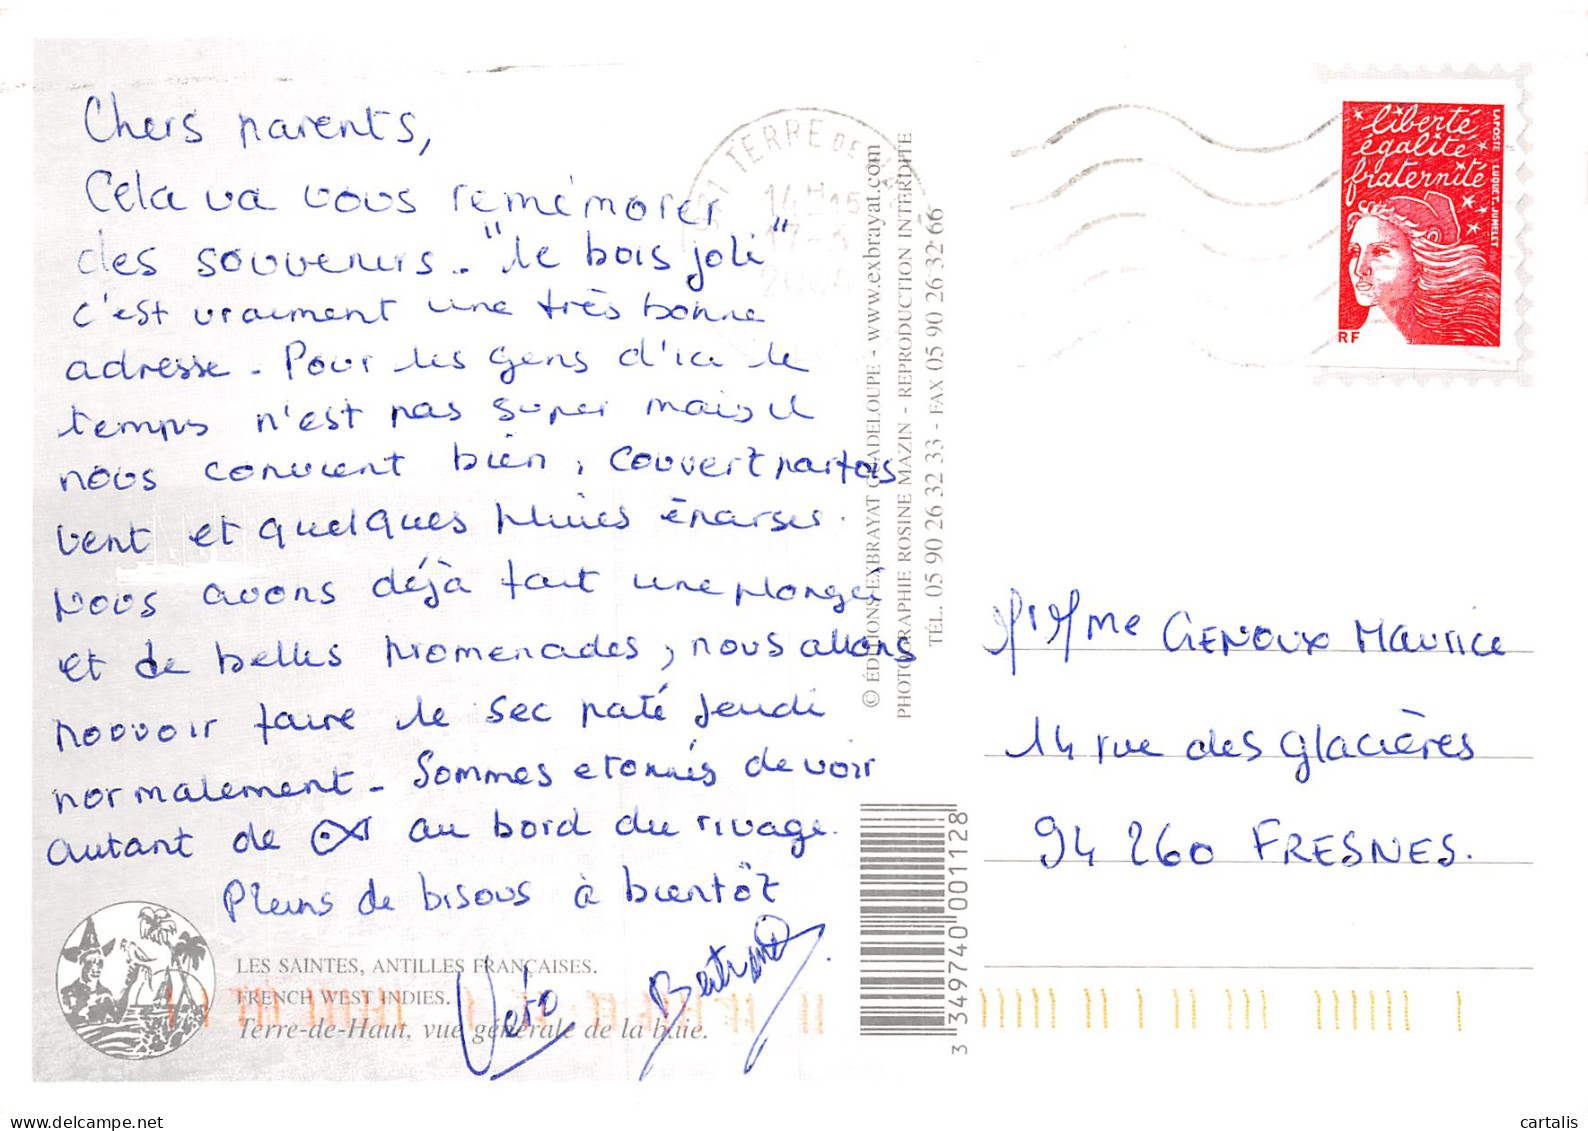 Chers parents,
Cela va vous remémorer
des souvenirs.. "le bois joli"
c'est vraiment une très bonne
adresse. Pour les gens d'ici le
temps n'est pas super mais il
nous convient bien, couvert parfois
vent et quelques pluies éparses.
Nous avons déjà fait une plongée
et de belles promenades, nous allons
pouvoir faire le sec paté jeudi
normalement - Sommes etonnés de voir
autant de au bord du rivage.
Pleins de bisous à bientôt
Véro Bertrand
LES SAINTES, ANTILLES FRANÇAISES.
FRENCH WEST INDIES.
Terre-de-Haut, vue générale de la baie.
© ÉDITIONS EXBRAYAT GUADELOUPE - www.exbrayat.com
PHOTOGRAPHIE ROSINE MAZIN - REPRODUCTION INTERDITE
TÉL. 05 90 26 32 33 - FAX 05 90 26 32 66
3 349740 001128
TERRE DE
14 H 15
2004
liberté
égalité
fraternité
LA POSTE LUQUET-JUMELET
RF
M. Mme GENOUX Maurice
14 rue des glacières
94 260 FRESNES.
cartalis
www.delcampe.net